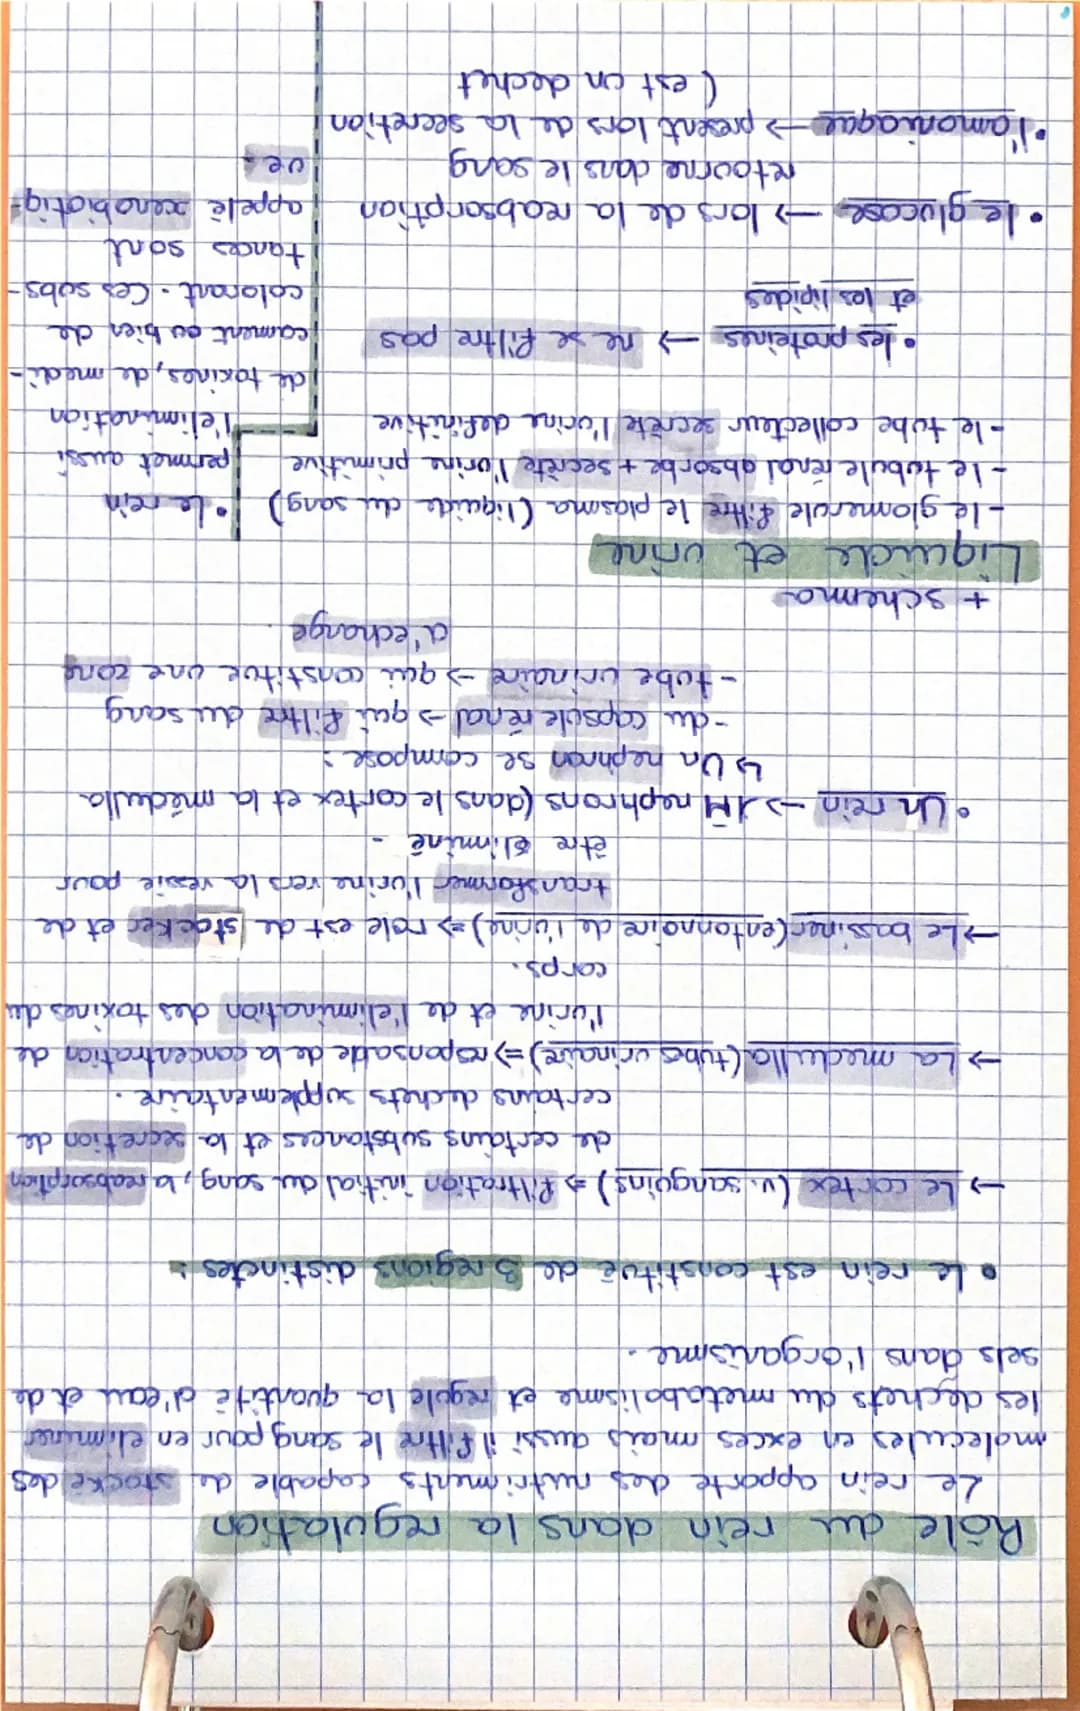 Rôle du rein dans la regulation
Le rein apporte des nutriments capable de stocké des
molécules en exces mais aussi il filtre le sang pour en eliminer
les dechets du metabolisme et regule la quantité d'eau et de
sels dans l'organisme.
• Le rein est constitué de 3 regions distinctes :
→ Le cortex (v. sanguins) ⇒ filtration initial du sang, la reabsorption
de certains substances et la secretion de
certains dechets supplementaire.
→ La medulla (tubes urinaire) ⇒ responsable de la concentration de
l'urine et de l'elimination des toxines du
corps.
→ Le bassinet (entonnoire de l'urine) ⇒ role est de stocker et de
transformer l'urine vers la vessie pour
être éliminé.
• Un rein → 1M nephrons (dans le cortex et la médulla
↳ Un nephron se compose :
- du capsule rénal → qui filtre du sang
- tube urinaire → qui constitue une zone
d'echange.
+ schema
Liquide et urine
- le glomerule filtre le plasma (liquide du sang)
- le tubule rénal absorbe + secrète l'urine primitive
- le tube collecteur secrète l'urine definitive
• les proteines → ne se filtre pas
et les lipides
• le glucose → lors de la reabsorption
retourne dans le sang
• l'amoniaque → present lors de la secretion
(est un dechet
• Le rein
permet aussi
l'elimination
de toxines, de medi-
cament ou bien de
colorant. Ces subs-
tances sont
appelé xenobiotiq-
ue.